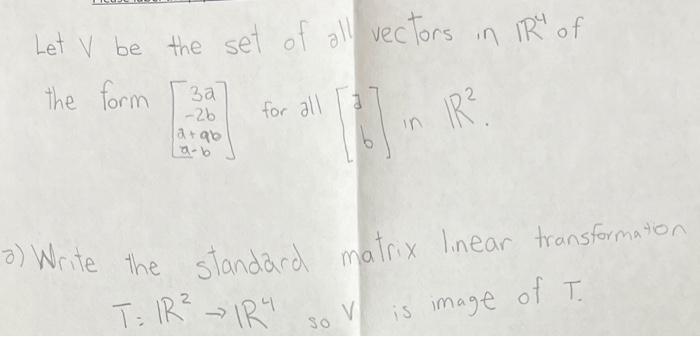 Let V be the set of all vectors in ℝ⁴ of
the form [3a -2b a+9b a-b] for all [a b] in ℝ².
a) Write the standard matrix linear transformation
T: ℝ² → ℝ⁴ so V is image of T.